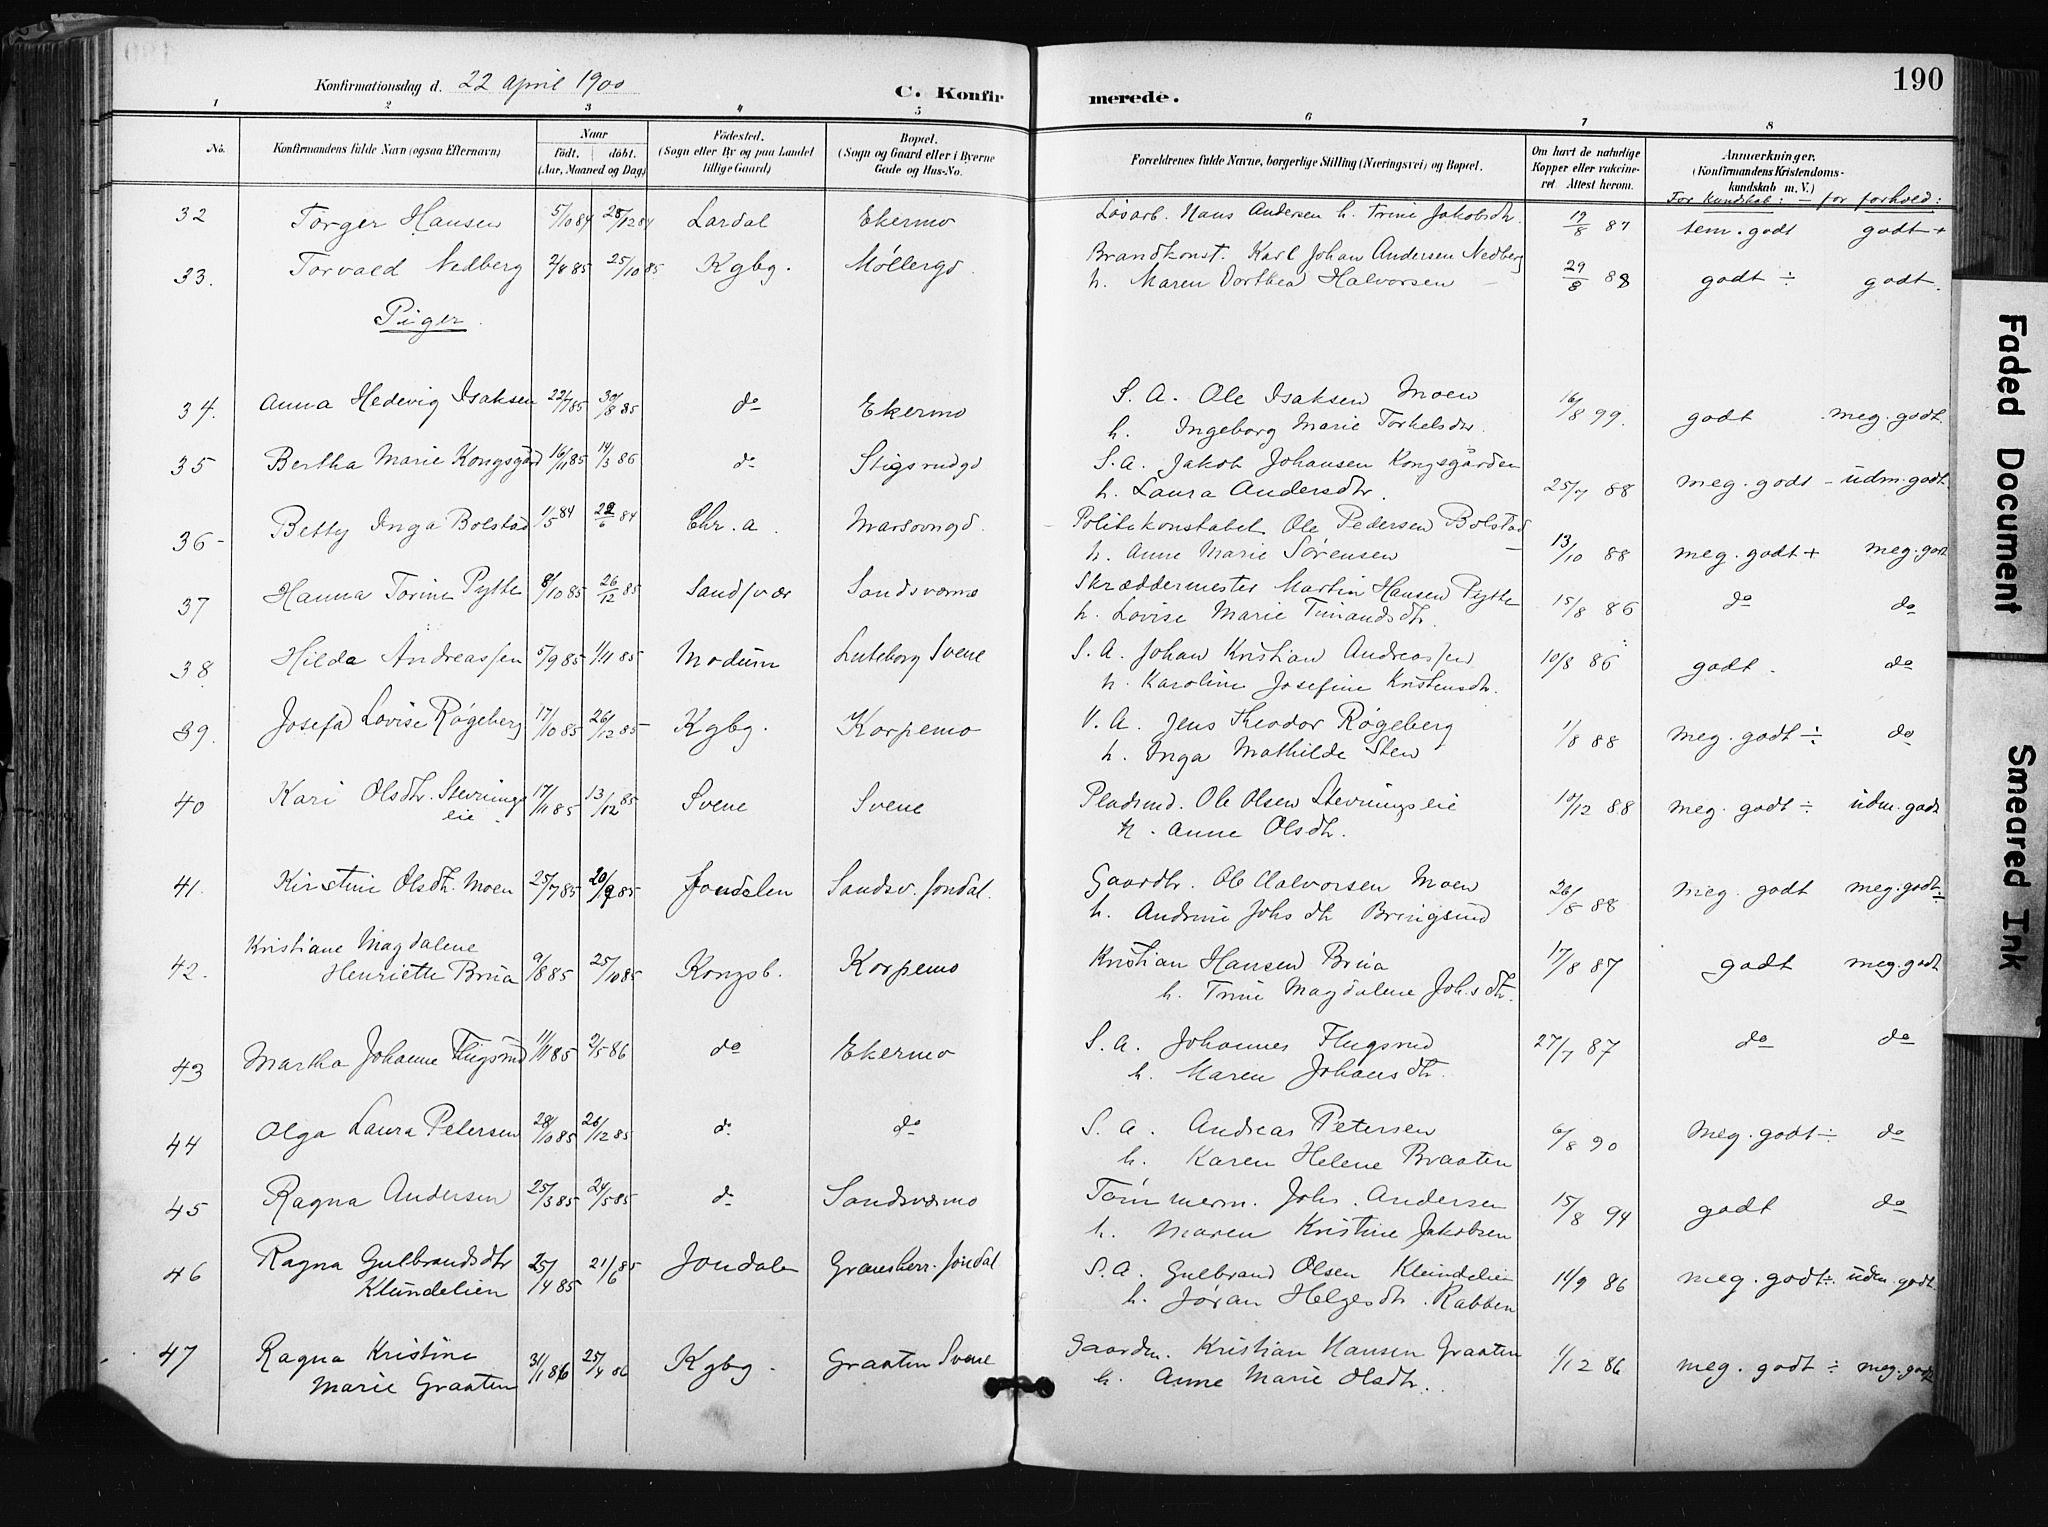 190
Konfirmationsdag d. 22 april 1900
C. Konfirmerede.
1 2 3 4 5 6 7 8
No. Konfirmandens fulde Navn (ogsaa Efternavn) Naar födt. döbt. (Aar, Maaned og Dag) Födested. (Sogn eller By og paa Landet tillige Gaard) Bopæl. (Sogn og Gaard eller i Byerne Gade og Hus-No. Forældrenes fulde Navne, borgerlige Stilling (Næringsvei) og Bopæl. Om havt de naturlige Kopper eller vakcineret Attest herom. Anmærkninger. (Konfirmandens Kristendomskundskab m. V.)
For kundskab: — for forhold:
32 Torger Hansen 5/10 84 28/12 84 Lardal Ekermo Løsarb. Hans Andersen h. Trine Jakobsdr. 19/8 87 tem. godt godt +
33. Torvald Nedberg 2/8 85 25/10 85 Kgbg. Møllergd. Brandkonst. Karl Johan Andersen Nedberg
h. Maren Dorthea Halvorsen 29/8 88 godt ÷ godt.
Piger.
34. Anna Hedevig Isaksen 22/7 85 30/8 85 do Ekermo S. A. Ole Isaksen Moen
h. Ingeborg Marie Torkelsdr. 16/8 99. godt meg. godt.
35 Bertha Marie Kongsgård 16/11 85 14/3 86 do Stigsrudgd S. A. Jakob Johansen Kongsgården
h. Laura Andersdtr. 25/7 88 meg. godt - udm. godt.
36- Betty Inga Bolstad 1/5 84 22/6 84 Chr.a. Politikonstabel Ole Pedersen Bolstad
h. Anne Marie Sørensen 13/10 88 meg. godt + meg. godt
37 Hanna Torine Pytte 8/10 85 26/12 85 Sandsvær Sandsværmo Skræddermester Martin Hansen Pytte
h. Lovise Marie 15/8 86 do do
38. Hilda Andreassen 5/9 85 1/11 85 Modum Luteborg Svene S. A. Johan Kristian Andreassen
h. Karoline Josefine Kristensdtr. 10/8 86 godt. do
39. Josefa Lovise Røgeberg 17/10 85 26/12 85 Kgbg. Korpemo V. A. Jens Theodor Røgeberg
h. Inga Mathilde Sten 1/8 88 meg. godt ÷ do
40 Kari Olsdtr. Stevnings
eie. 17/11 85 13/12 85 Svene Svene Pladsmd. Ole Olsen Stevningseie
h. Anne Olsdtr. 10/12 88 meg. godt ÷ udm. godt
41. Kirstine Olsdtr. Moen 25/7 85 20/9 85 Jondalen Sandsv. Jondal. Gaardbr. Ole Halvorsen Moen
h. Andrine Johs dtr Bringsrud 26/8 88 meg. godt meg. godt ÷
42. Kristiane Magdalene
Henriette Brua 9/8 85 25/10 85 Kongsb. Korpemo Kristian Hansen Brua
h. Trine Magdalene Johs dtr. 17/8 87 godt meg. godt
43 Martha Johanne Flugsrud 11/11 85 2/5 86 do Ekermo S. A. Johannes Flugsrud
h. Maren Johansdtr. 27/7 87 do do
44 Olga Laura Petersen 28/10 85 26/12 85 do do S. A. Andreas Petersen
h. Karen Helene Braaten 6/8 90 Meg. godt ÷ do
45 Ragna Andersen 25/3 85 24/5 85 do Sandsværmo Tømmerm. Johs. Andersen
h. Maren Kristine Jakobsen 15/8 94 godt do
46 Ragna Gulbrandsdtr
Klundelien 25/4 85 21/6 85 Jondalen Gransherr. Jondal S. A. Gulbrand Olsen Klundelien
h. Jøran Helgesdtr. Rabben 14/9 86 meg. godt ÷ udm. godt.
47 Ragna Kristine
Marie Graaten 31/1 86 25/4 86 Kgbg. Graaten Svene Gaardm. Kristian Hansen Graaten
h. Anne Marie Olsdtr. 1/12 86 meg. godt ÷ meg. godt
Faded Document
Smeared Ink